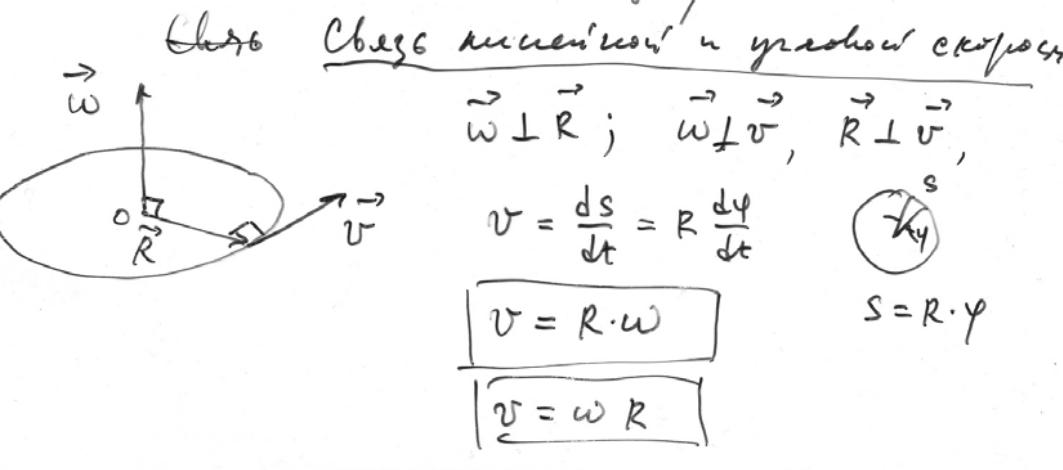 Связь Связь линейной и угловой скорости
\vec{ω}
\vec{ω} ⊥ \vec{R} ; \vec{ω} ⊥ \vec{v} , \vec{R} ⊥ \vec{v} ,
O \vec{R} \vec{v}
v = \frac{ds}{dt} = R \frac{dφ}{dt}
s φ
v = R · ω
S = R · φ
v = ω R